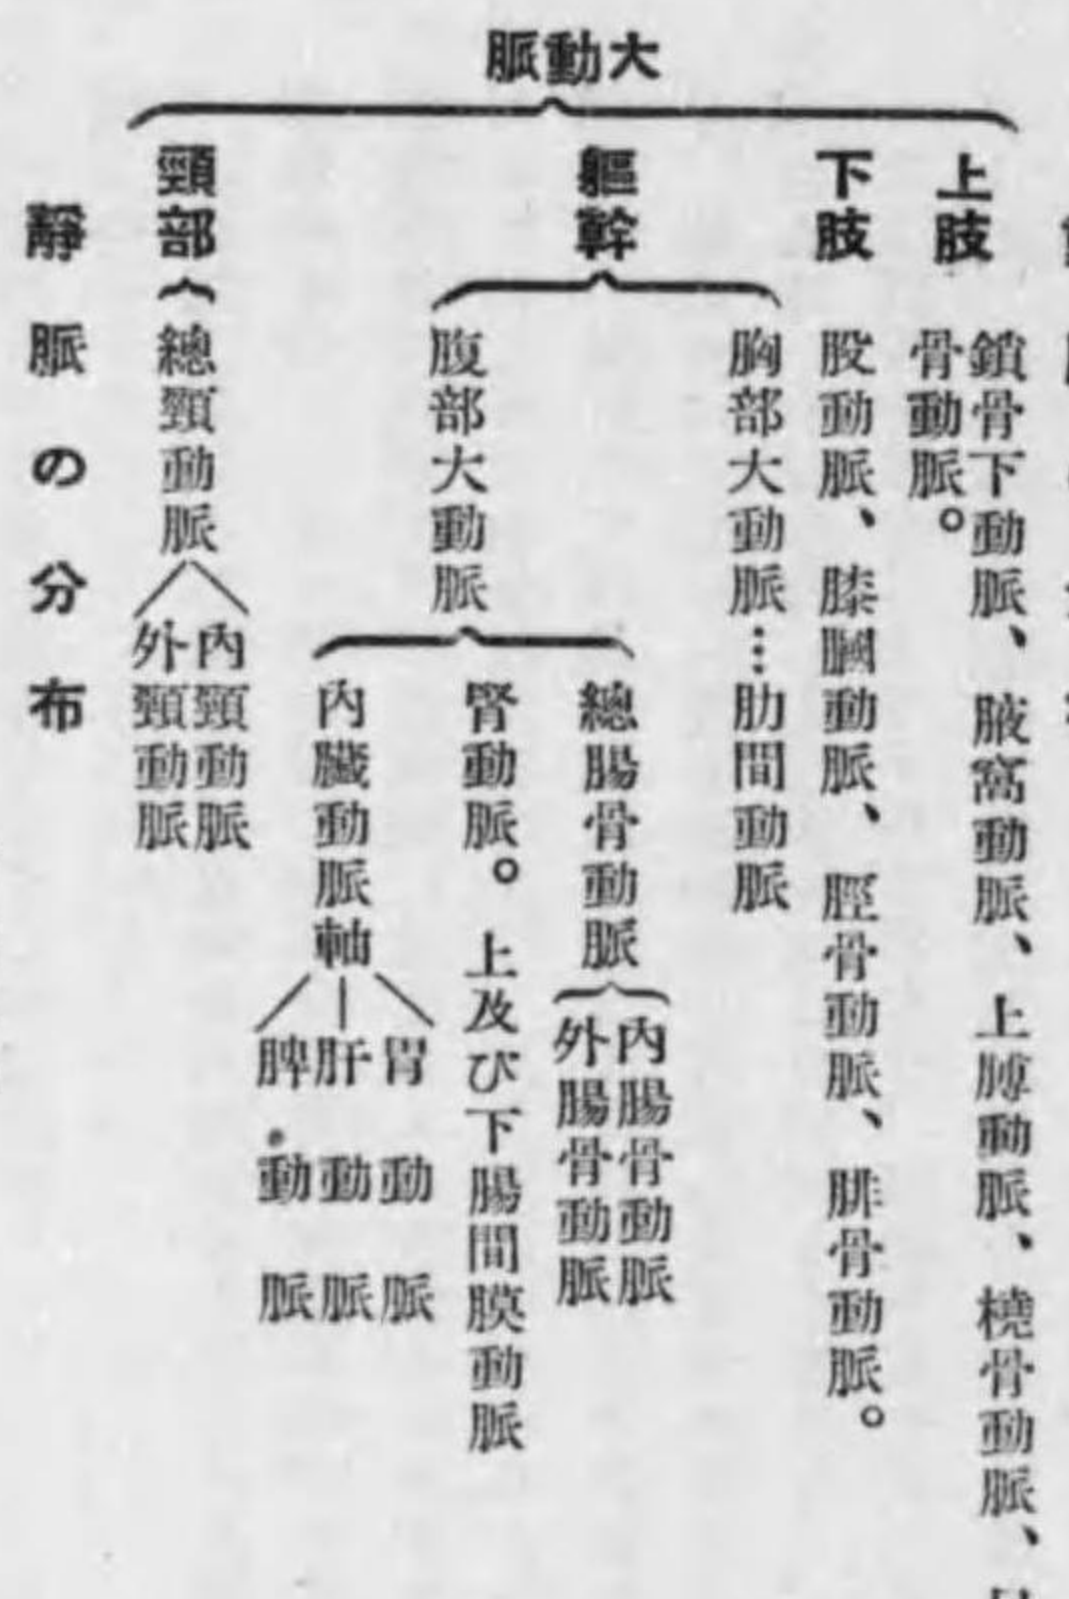 大動脈
上肢
鎖骨下動脈、腋窩動脈、上膊動脈、橈骨動脈、
骨動脈。
下肢
股動脈、膝膕動脈、脛骨動脈、腓骨動脈。
軀幹
胸部大動脈…肋間動脈
腹部大動脈
總腸骨動脈
內腸骨動脈
外腸骨動脈
腎動脈。上及び下腸間膜動脈
內臟動脈軸
胃動脈
肝動脈
脾動脈
頸部
總頸動脈
內頸動脈
外頸動脈
靜脈の分布